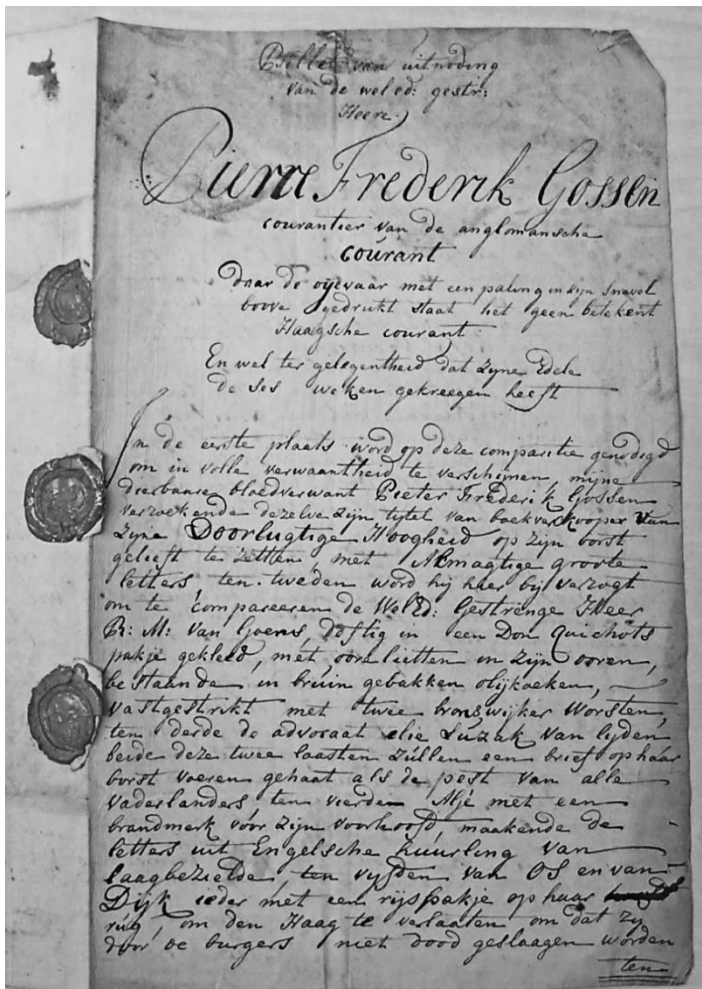 Billet van uitnoding
van de wel ed: gestr:
Heere
Pierre Frederik Gossen
courantier van de anglomansche
courant
daar de oijevaar met een paling in zijn snavel
boove gedrukt staat het geen betekent
Haagsche courant:
En wel ter gelegentheid dat zyne Edele
de ses weken gekreegen heeft
In de eerste plaats word op deze comparitie genodigd
om in volle verwaantheid te verschijnen, mijne
dierbaare bloedverwant Pieter Frederik Gossen
verzoekende dezelve zijn tytel van boekverkooper van
zyne Doorlugtige Hoogheid op zijn borst
gelieft te zetten met Almagtige groote
letters ten tweden word hij hier bij verzogt
om te compareeren de Wel Ed: Gestrenge Heer
R: M: van Goens, deftig in een Don Quichots
pakje gekleed, met oorelietten in zijn ooren,
bestaande in bruin gebakken olijkoeken,
vastgestrikt met twee bronswijker worsten,
ten derde de advocaat elie Luzak van lyden
beide deze twee laasten zúllen een brief op haar
borst voeren gehaat als de pest van alle
vaderlanders, ten vierden Alje met een
brandmerk vóór zijn voorhoofd, maakende de
letters uit Engelsche húúrling van
laagbezielde, ten vyfden van Os en van
Dijk ieder met een rijspakje op haar
rúg, om den Haag te verlaaten om dat zy
door de burgers niet dood geslaagen worden
ten